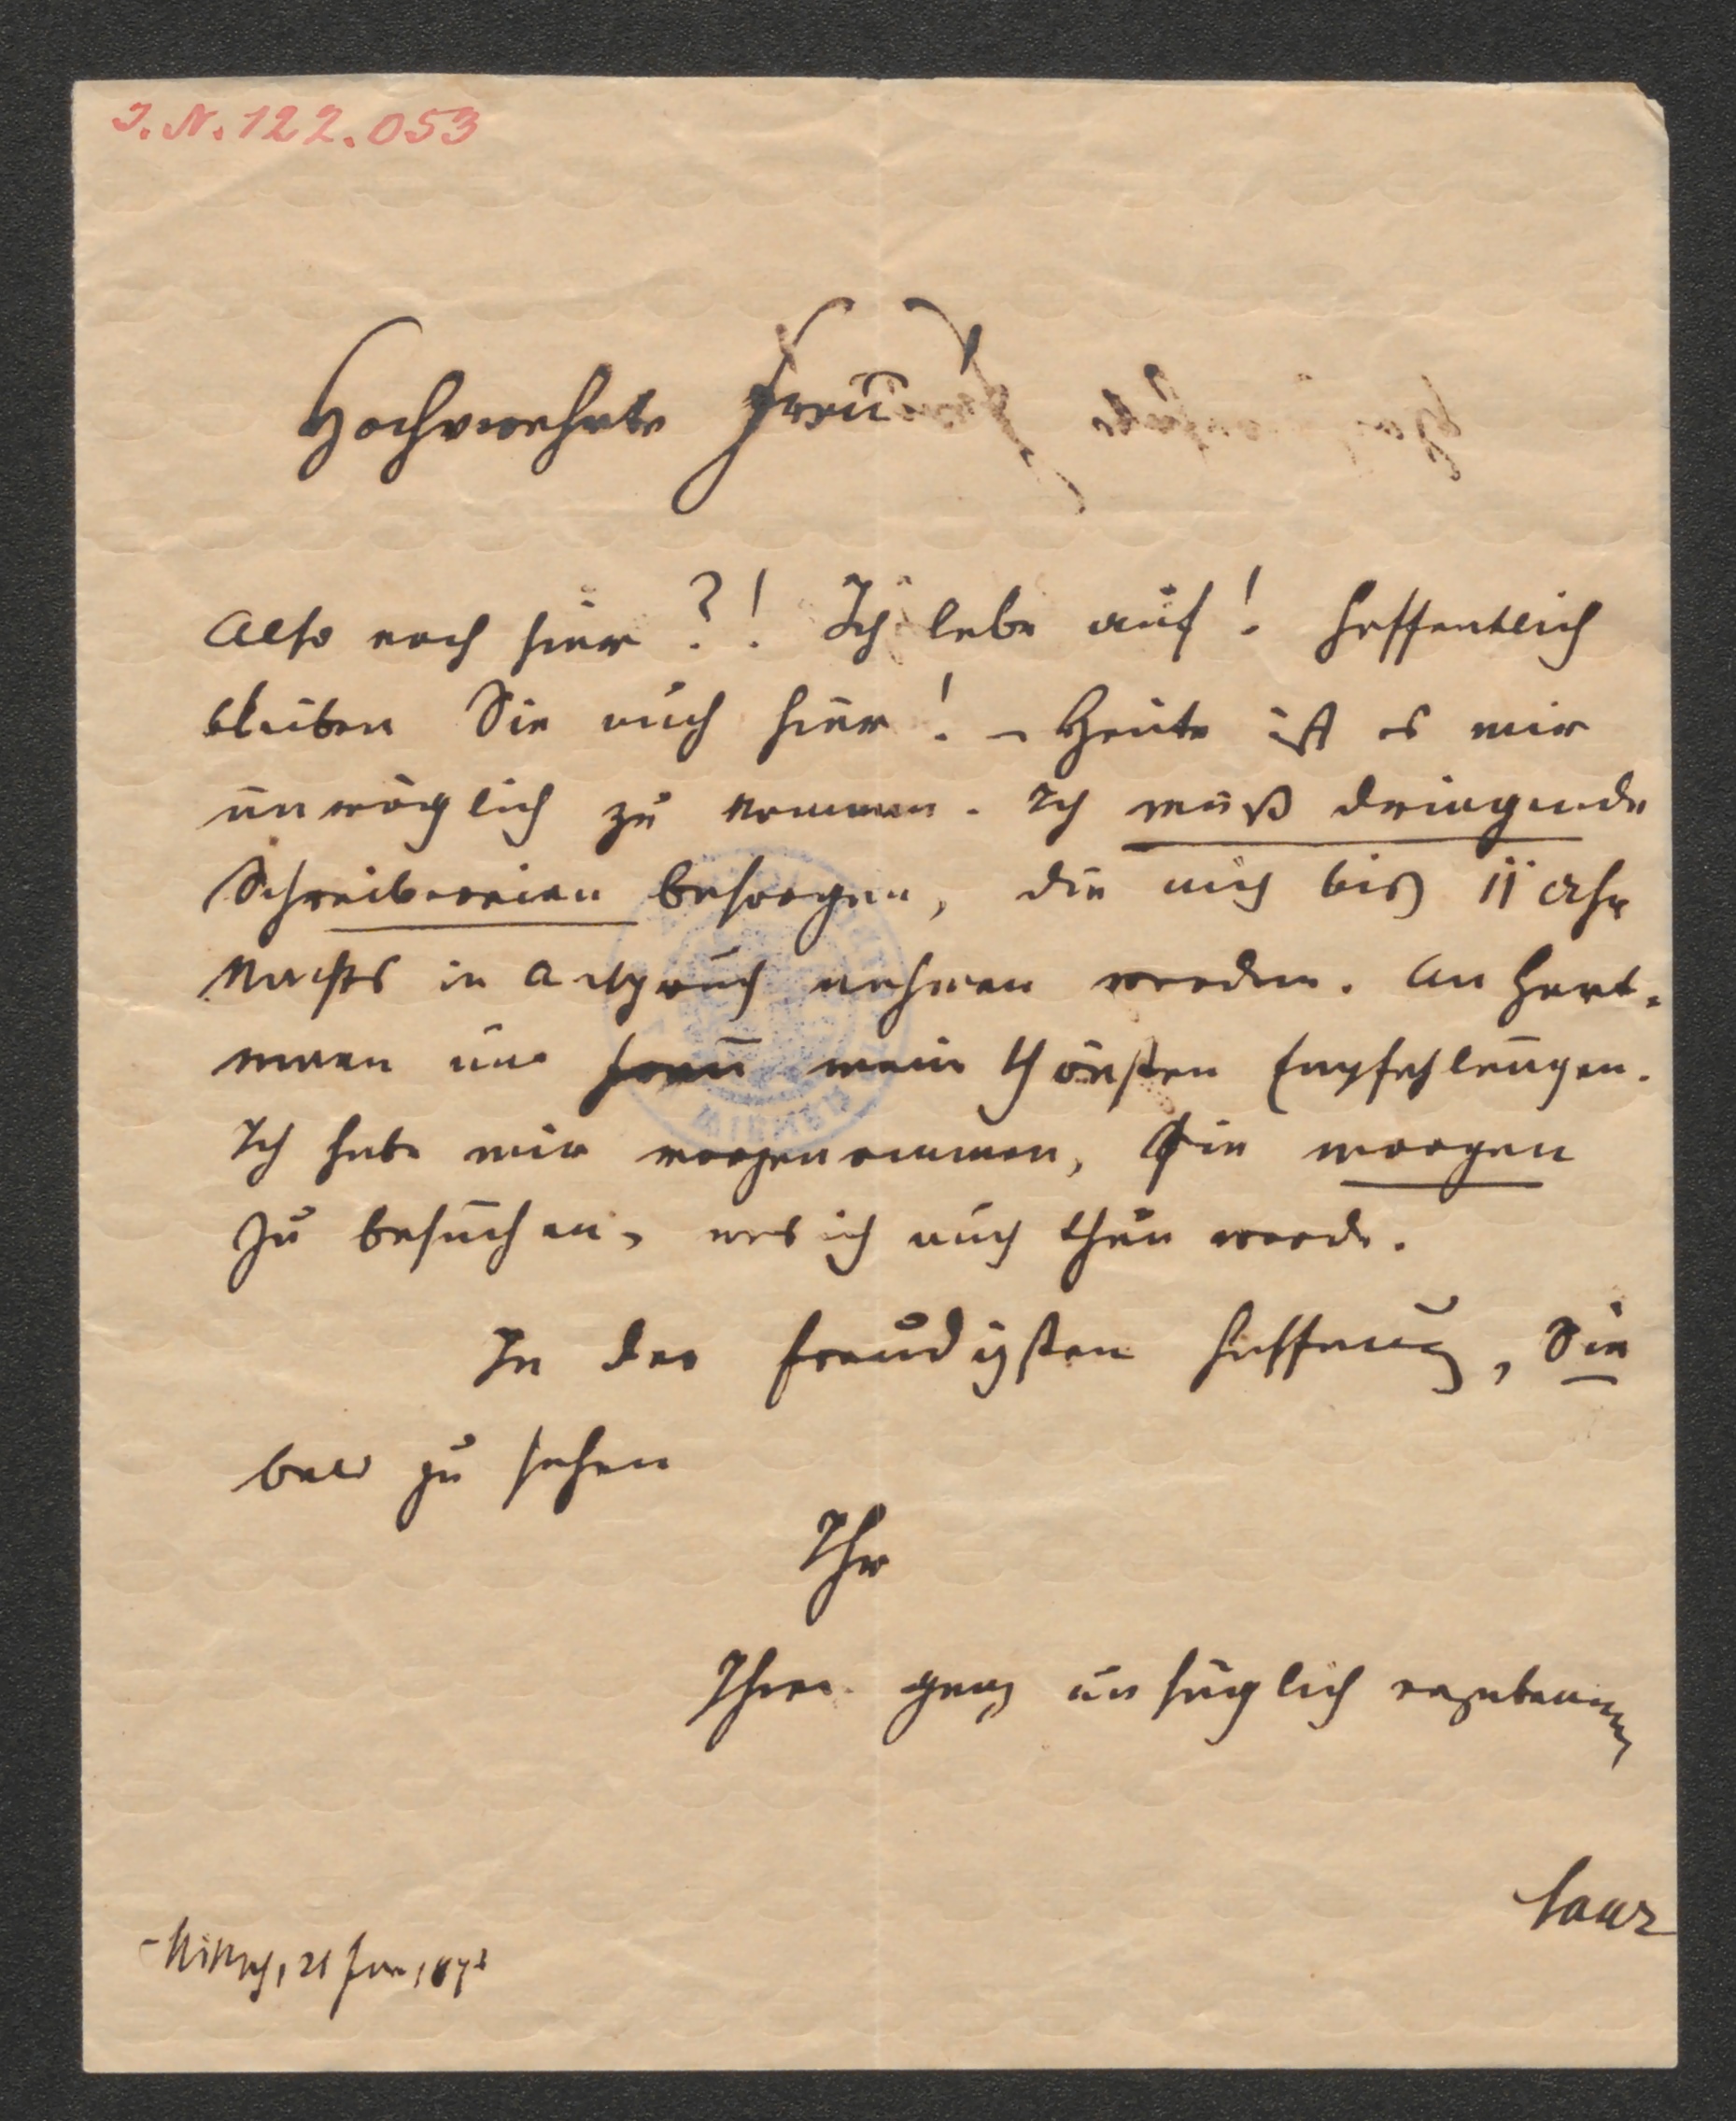 J. N. 122.053
Hochverehrte Frau
Also noch hier?! Ich lebe auf! Hoffentlich
bleiben Sie auch hier! – Heute ist es mir
unmöglich zu kommen. Ich muß dringende
Schreibereien besorgen, die mich bis 11 Uhr
Nachts in Anspruch nehmen werden. An Hart-
mann und Frau mein schönsten Empfehlungen.
Ich habe mir vorgenommen, Sie morgen
zu besuchen, was ich auch thun werde.
In der freudigsten Hoffnung, Sie
bald zu sehen
Ihr
Ihnen ganz unsäglich ergebener
Saar
Mittwoch, 21 Jun, 187
WIENER